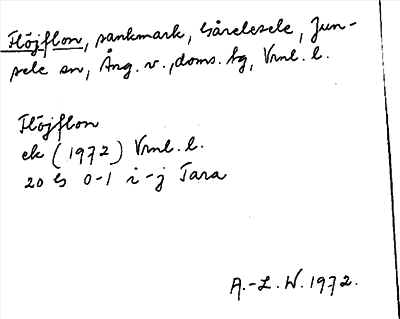 Flöjflon, sankmark, Gårelesele, Jun-
sele sn, Ång. v., doms. bg, Vrml. l.
Flöjflon
ek (1972) Vrml. l.
20 G 0-1 i-j Tara
A.-L. W. 1972.